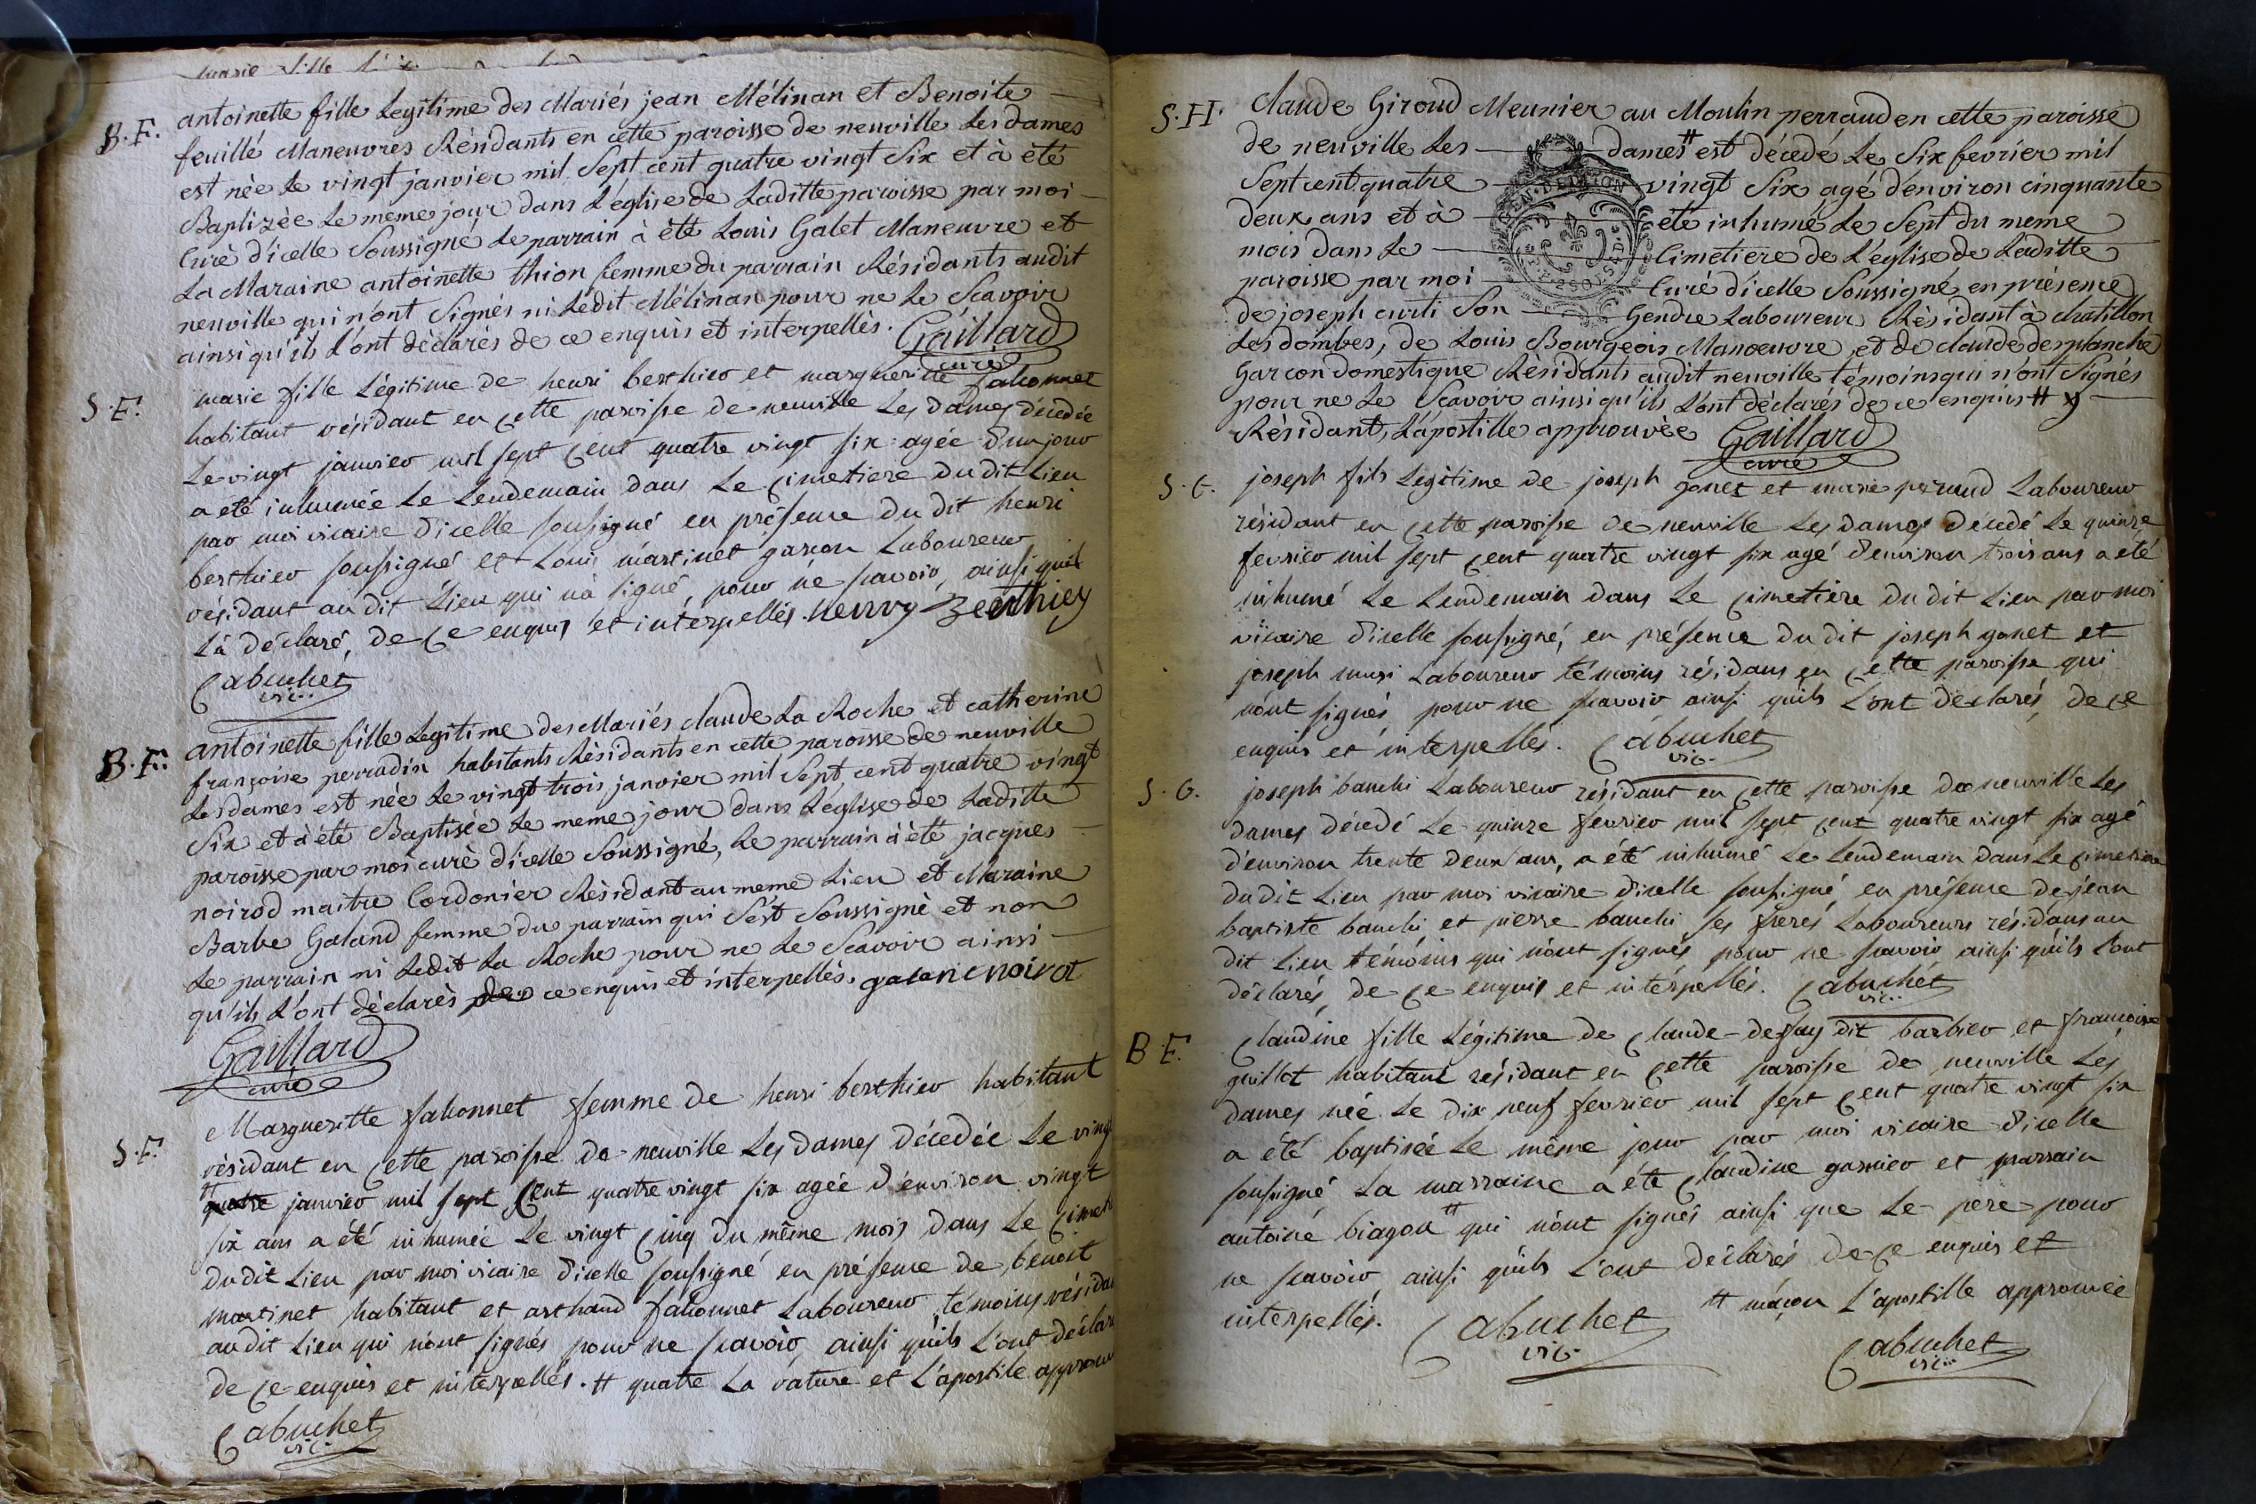 B.F. antoinette fille Legitime des Mariés jean Mélinan et Benoite
feuillé Maneuvres Résidants en cette paroisse de neuville Les dames
est née Le vingt janvier mil Sept cent quatre vingt Six et à été
Baptizèe Le meme jour dans L'église de Laditte paroisse par moi
Curè d'icelle Soussigné Le parrain à été Louis Galet Maneuvre et
La Maraine antoinette thion femme du parrain Résidants audit
neuville qui n'ont Signés ni Ledit Mélinan pour ne Le Scavoir
ainsi qu'ils L'ont dèclarés de ce enquis et interpellès. Gaillard
curé
S.F. marie fille Légitime de henri berthier et margueritte falconnet
habitant résidant en cette paroisse de neuville Les dames décédée
Le vingt janvier mil sept cent quatre vingt six agée d'un jour
a été inhumée Le Lendemain dans Le cimetiere du dit Lieu
par moi vicaire d'icelle soussigné en présence du dit henri
berthier soussigné et Louis martinet garçon Laboureur
résidant au dit Lieu qui n'a signé, pour ne scavoir, ainsi quil
L'a déclaré, de ce enquis et interpellés. henry Berthiey
Cabuchet
vic..
B.F. antoinette fille Legitime des Mariés claude La Roche et catherine
françoise perradin habitants Résidants en cette paroisse de neuville
Les dames est née Le vingt trois janvier mil Sept cent quatre vingt
Six et à été Baptisée Le meme jour dans L'église de Laditte
paroisse par moi curè d'icelle Soussigné, Le parrain à été jacques
noirod maitre Cordonier Résidant au meme Lieu et Maraine
Barbe Galand femme du parrain qui S'est Soussignè et non
Le parrain ni Ledit La Roche pour ne Le Scavoir ainsi
qu'ils L'ont dèclarès de ce enquis et interpellès. galanc noirot
Gaillard
curé
S.F. Margueritte falconnet femme de henri berthier habitant
résidant en cette paroisse de neuville Les dames décédée Le vingt
# quatre janvier mil sept cent quatre vingt six agée d'environ vingt
six ans a été inhumée Le vingt cinq du même mois dans Le cimeti
du dit Lieu par moi vicaire d'icelle soussigné en présence de benoit
martinet habitant et arthaud falconnet Laboureur témoins résidan
au dit Lieu qui n'ont signés pour ne scavoir, ainsi quils L'ont déclar
de ce enquis et interpellés. # quatre La rature et L'apostile approuv
Cabuchet
vic.
S.H. Claude Giroud Meunier au Moulin perraud en cette paroisse
de neuville Les dames # est décedé Le Six fevrier mil
Sept cent quatre vingt Six agé d'environ cinquante
deux ans et à été inhumé Le Sept du meme
mois dans Le Cimetiere de L'église de Laditte
paroisse par moi Curè d'icelle Soussigné en présence
de joseph curti Son Gendre Laboureur Rèsidant à chatillon
Les dombes, de Louis Bourgeois Manoeuvre et de claude desplanche
Garcon domestique Rèsidants audit neuville témoins qui n'ont Signés
pour ne Le Scavoir ainsi qu'ils L'ont dèclarés de ce enquis #
Rèsidant, L'apostille approuvée Gaillard
curé
S.G. joseph fils Légitime de joseph gonet et marie peraud Laboureur
résidant en cette paroisse de neuville Les dames décedé Le quinze
fevrier mil sept cent quatre vingt six agé d'environ trois ans a été
inhumé Le Lendemain dans Le cimetière du dit Lieu par moi
vicaire d'icelle soussigné, en présence du dit joseph gonet et
joseph Laboureur témoins résidans en cette paroisse qui
n'ont signés pour ne scavoir ainsi quils L'ont déclarés, de ce
enquis et interpellés. Cabuchet
vic.
S.G. joseph banchi Laboureur résidant en cette paroisse de neuville Les
dames décedé Le quinze fevrier mil sept cent quatre vingt six agé
d'environ trente deux ans, a été inhumé Le Lendemain dans Le cimetiere
du dit Lieu par moi vicaire d'icelle soussigné en présence de jean
baptiste banchi et pierre banchi ses freres Laboureurs résidans au
dit Lieu témoins qui n'ont signés pour ne scavoir ainsi quils L'ont
déclarés, de ce enquis et interpellés. Cabuchet
vic..
B.F. Claudine fille Légitime de Claude defay dit barbier et françoise
guillot habitant résidant en cette paroisse de neuville Les
dames née Le dix neuf fevrier mil sept cent quatre vingt six
a été baptisée Le même jour par moi vicaire d'icelle
soussigné La marraine a été Claudine garnier et parrain
antoine biagon # qui n'ont signés ainsi que Le père pour
ne scavoir ainsi quils L'ont déclarés de ce enquis et
interpellés. # maçon L'apostille approuvée
Cabuchet Cabuchet
vic. vic..